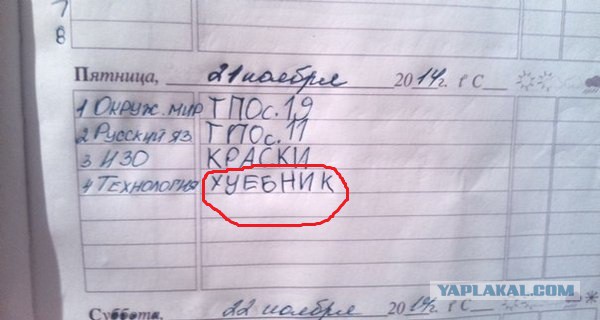 7
8
Пятница, 21 ноября 2014г. t°C
1 Окруж. мир ТПО с. 19
2 Русский яз ТПО с. 11
3 ИЗО КРАСКИ
4 Технология ХУЕБНИК
Суббота, 22 ноября 2014г. t°C
YAPLAKAL.COM